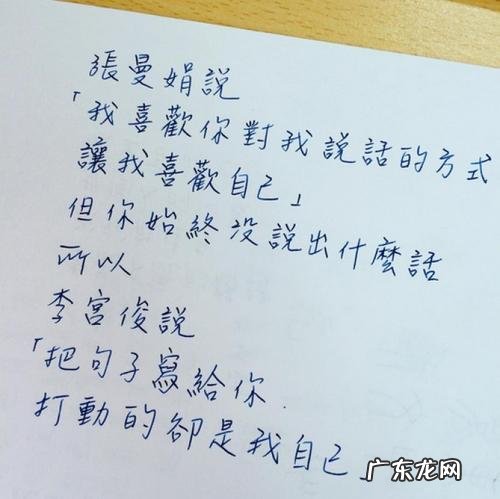 張曼娟說
「我喜歡你對我說話的方式
讓我喜歡自己」
但你始終沒說出什麼話
所以
李宮俊說
「把句子寫給你
打動的卻是我自己」
广东龙网